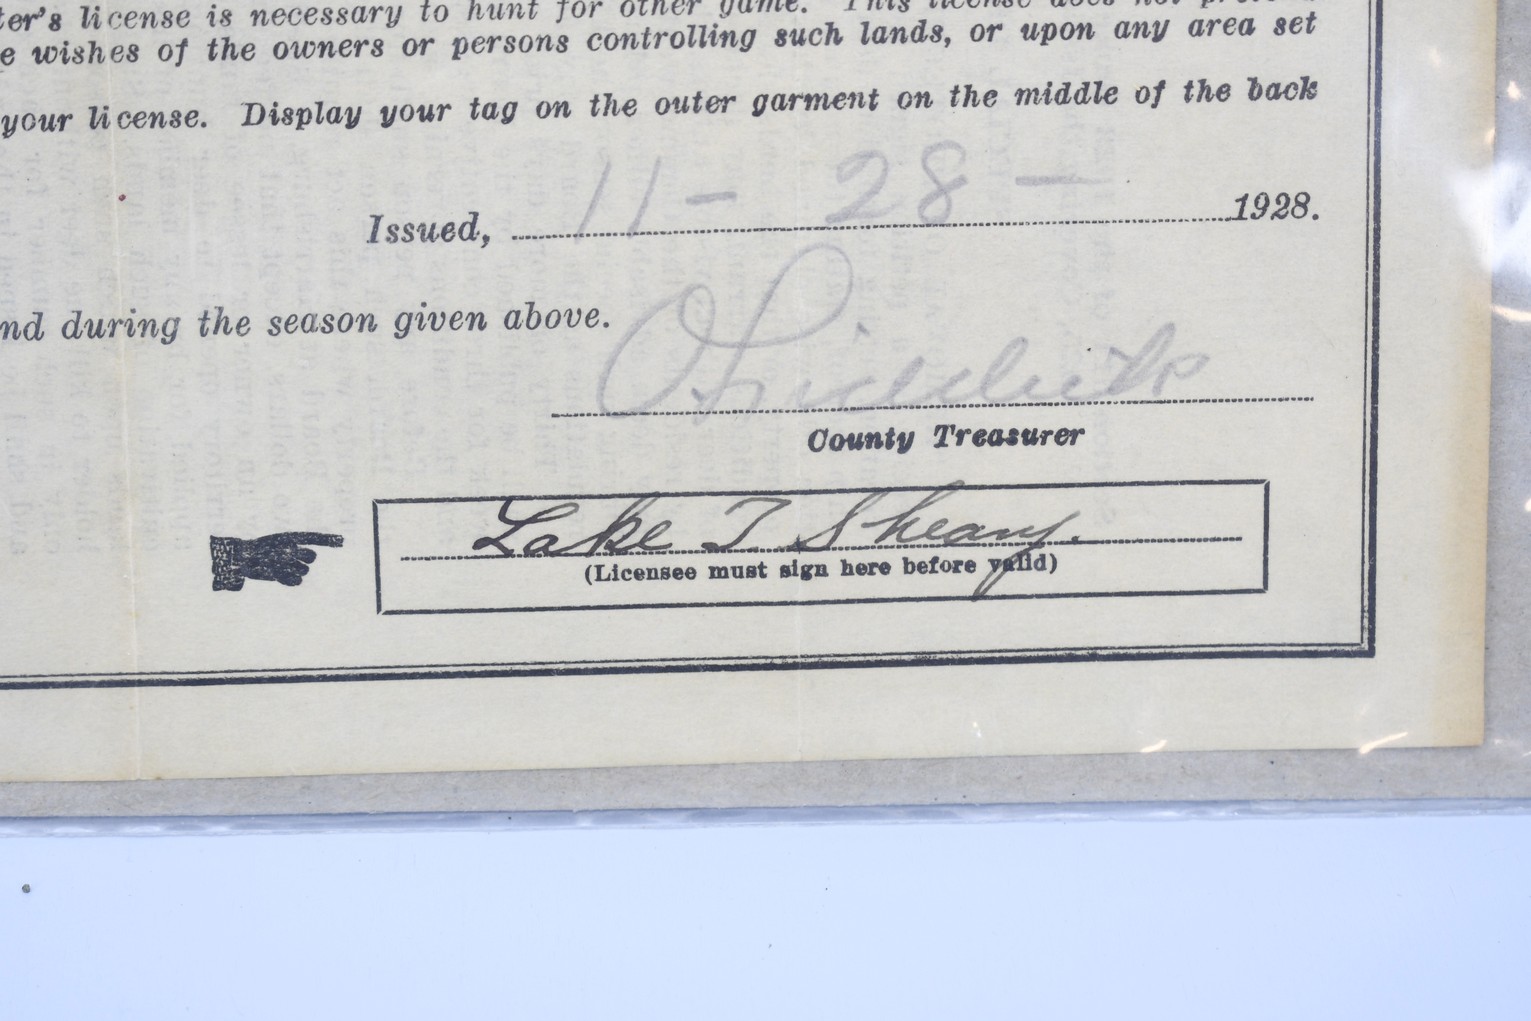 ter's license is necessary to hunt for other game. This license does not
e wishes of the owners or persons controlling such lands, or upon any area set
your license. Display your tag on the outer garment on the middle of the back
Issued, 11 - 28 - 1928.
nd during the season given above.
County Treasurer
Lake T Sheary.
(Licensee must sign here before valid)